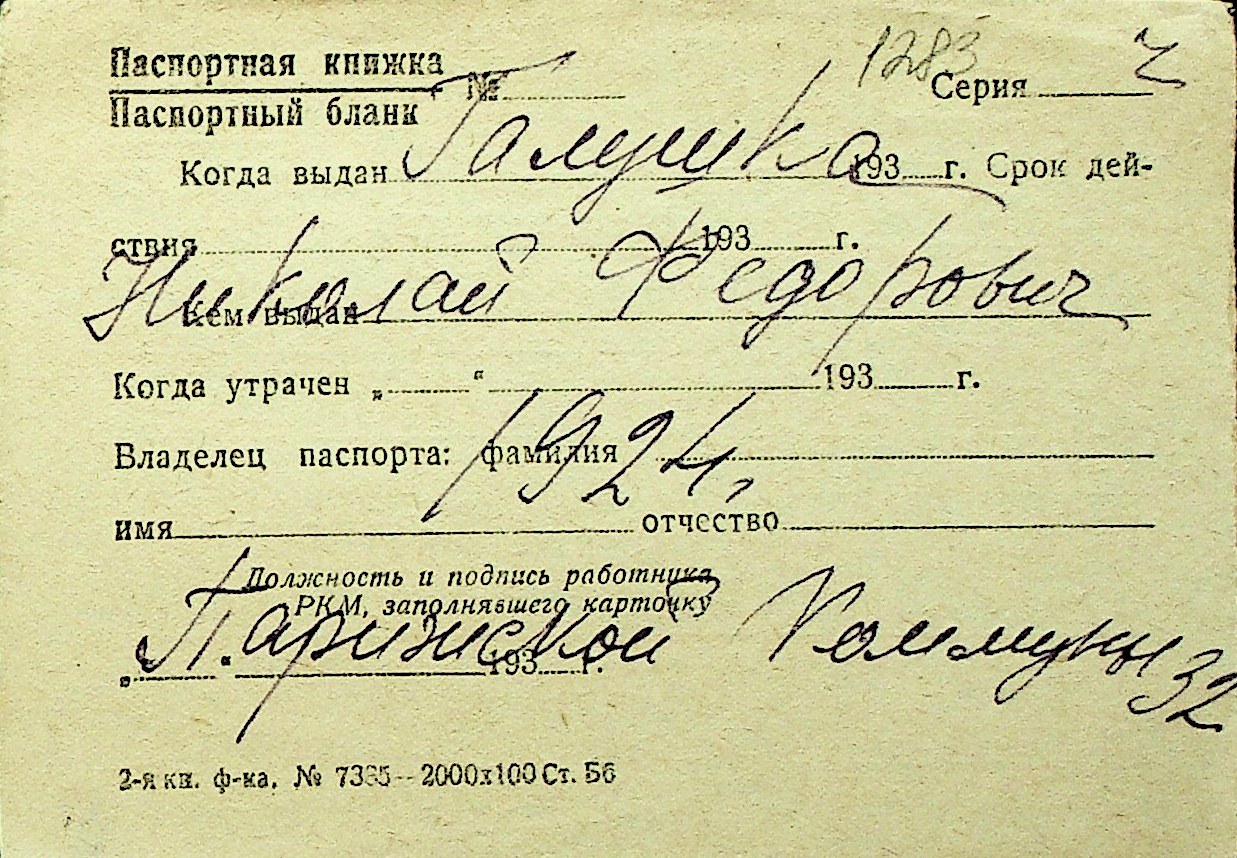 1283
ч
Паспортная книжка
Паспортный бланк
№ Серия
Галушка
Когда выдан 193 г. Срок дей-
ствия 193 г.
Николай Федорович
Кем выдан
Когда утрачен „ “ 193 г.
1924,
Владелец паспорта: фамилия
имя отчество
Должность и подпись работника
РКМ, заполнявшего карточку
П. Парижской Коммуны 32
„ “ 193 г.
2-я кн. ф-ка. № 7365—2000х100 Ст. Б6